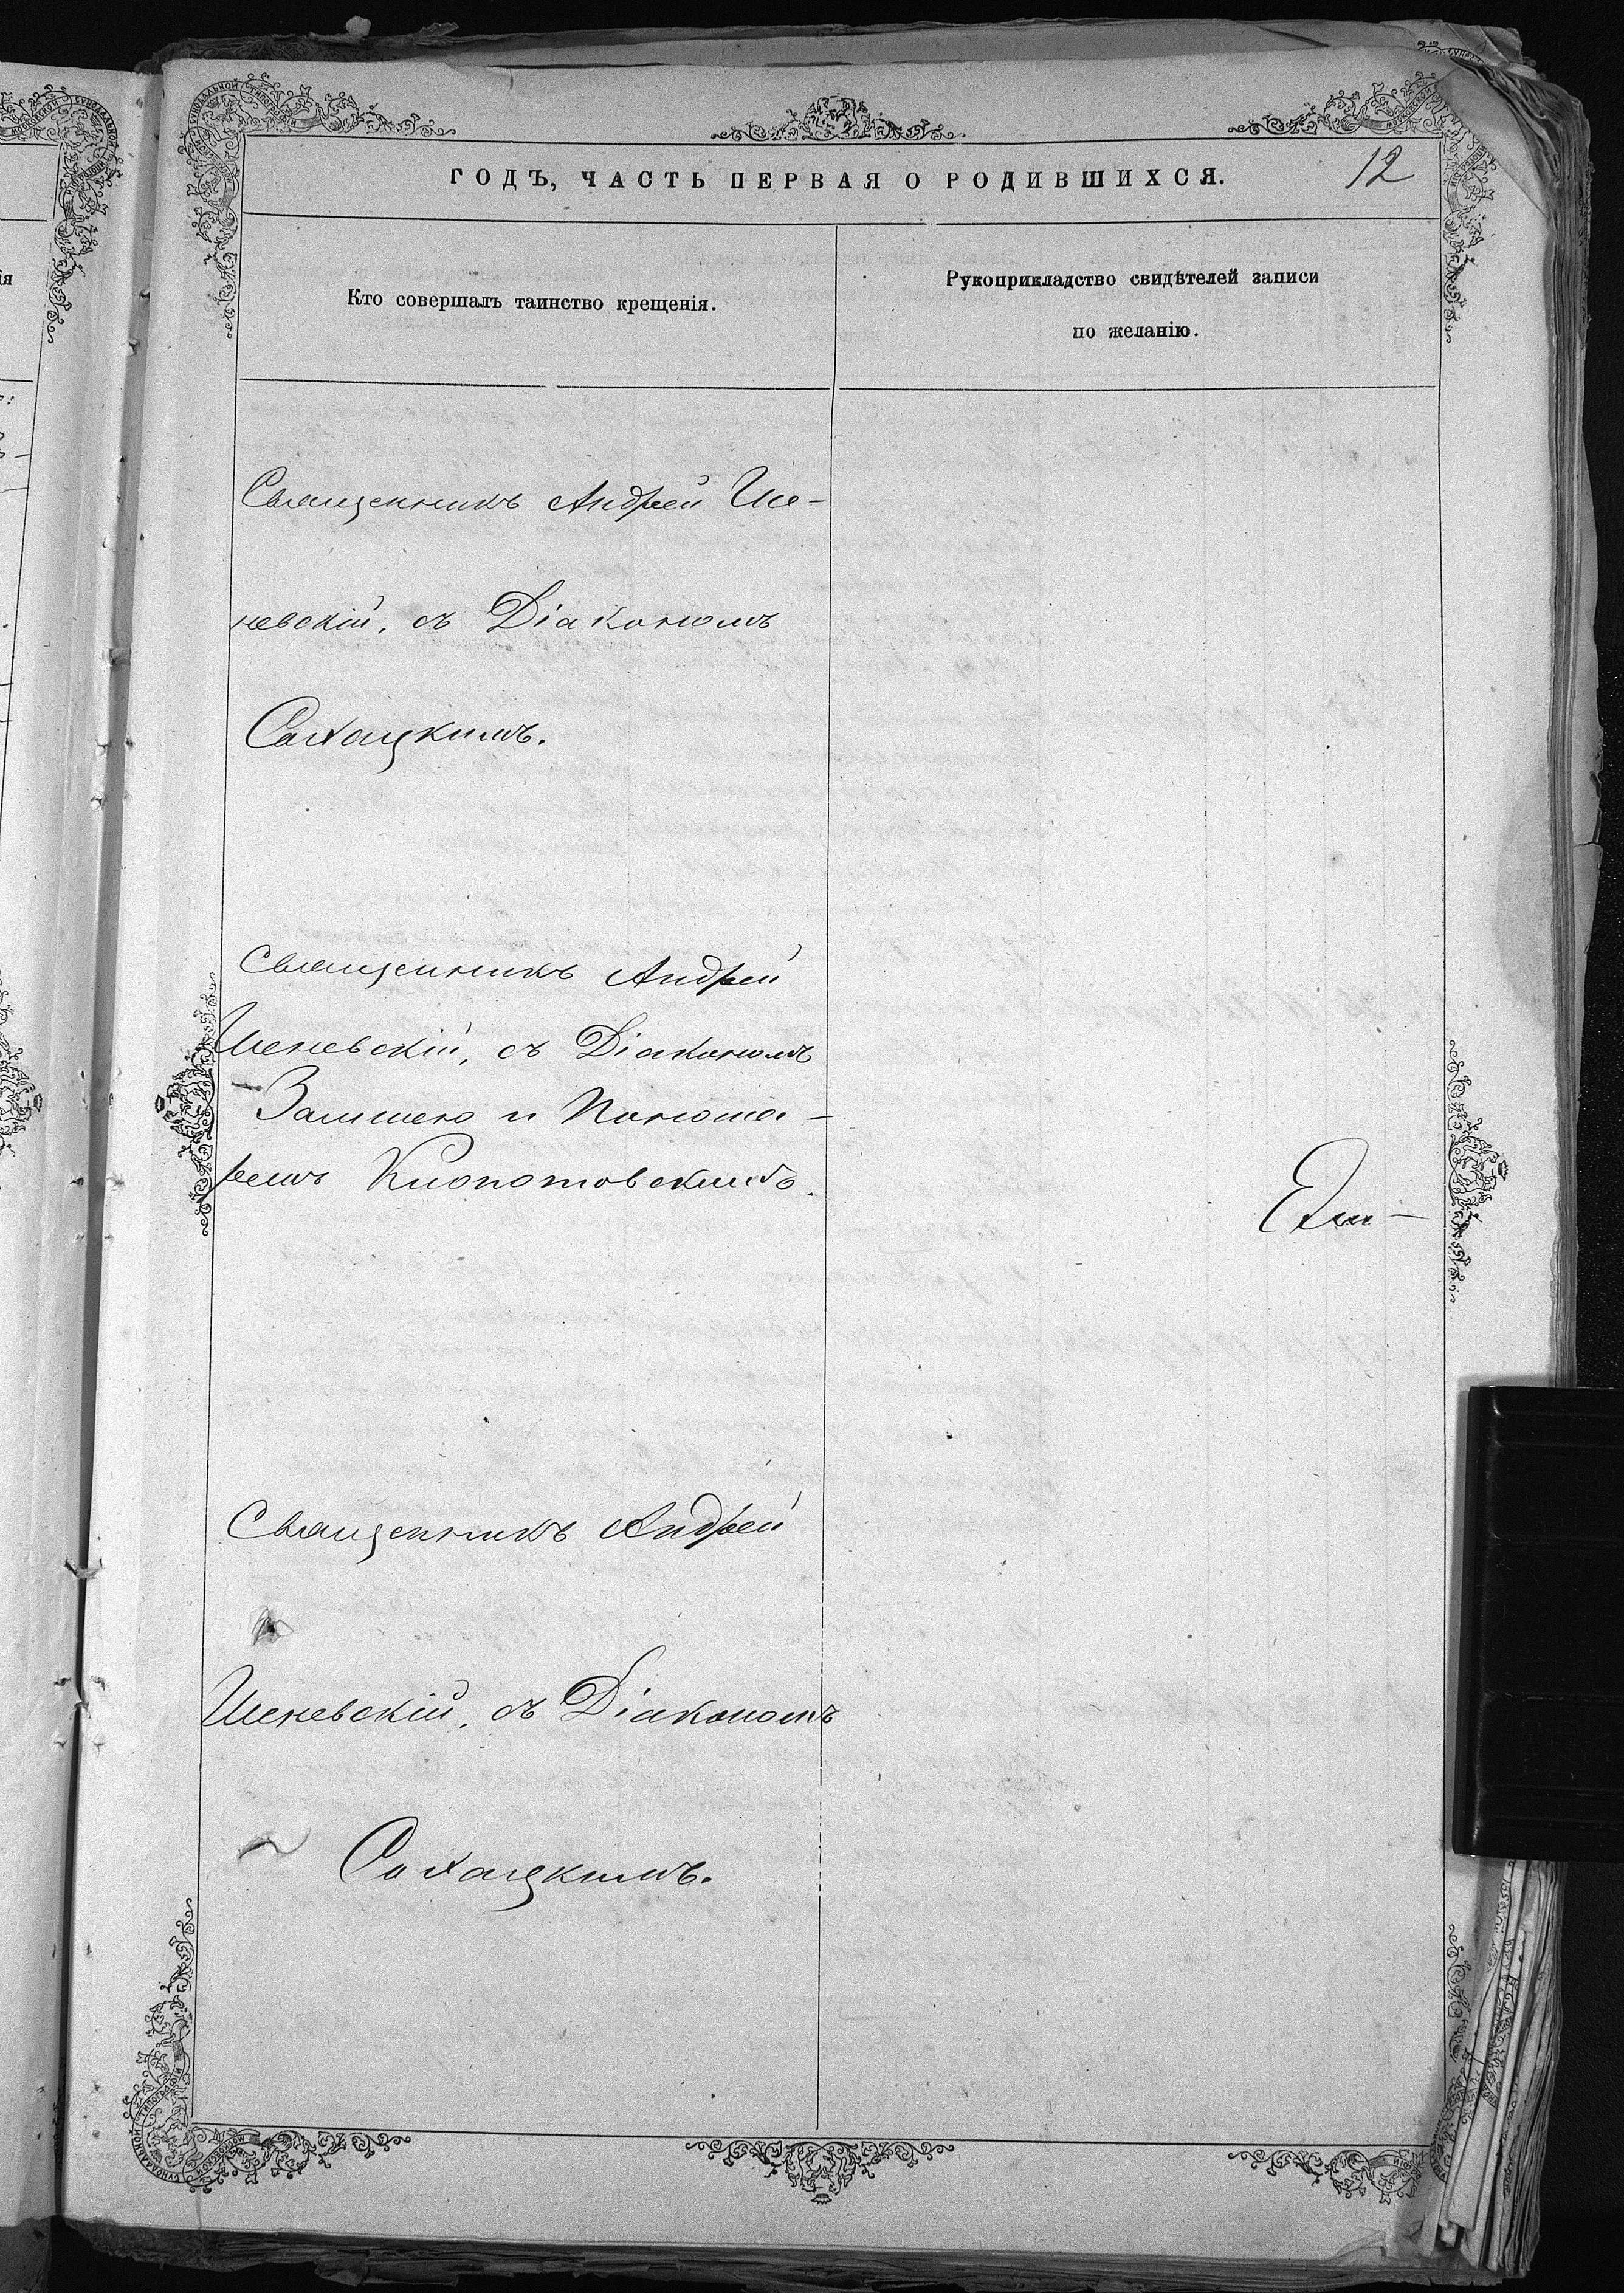 ГОДЪ, ЧАСТЬ ПЕРВАЯ О РОДИВШИХСЯ.
12
Кто совершалъ таинство крещенія.
Рукоприкладство свидѣтелей записи
по желанію.
Священникъ Андрей Ше-
невскій, съ Діакономъ
Сахацкимъ.
Священникъ Андрей
Шеневскій, съ Діакономъ
и Понома-
ремъ Клопотовскимъ.
Священникъ Андрей
Шеневскій, съ Діакономъ
Сахацкимъ.